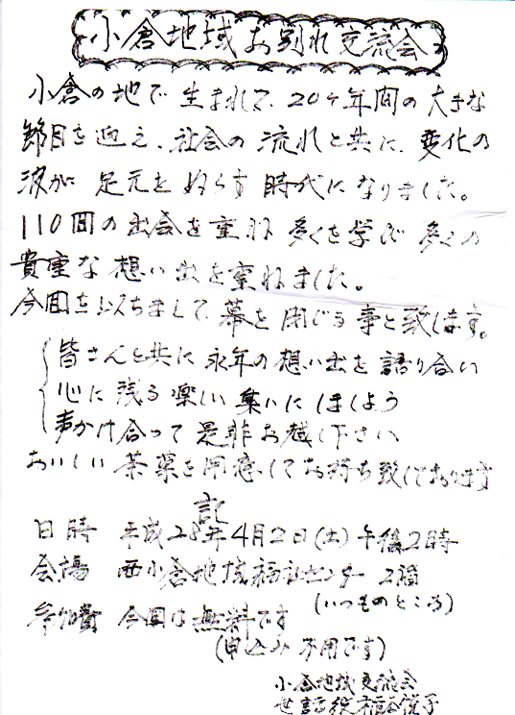 小倉地域お別れ交流会
小倉の地で生まれて、20ヶ年間の大きな
節目を迎え、社会の流れと共に、変化の
波が足元をぬらす時代になりました。
110回の出会を重ね多くを学び多くの
貴重な想い出を重ねました。
今回を以ちまして、幕を閉じる事と致します。
皆さんと共に永年の想い出を語り合い
心に残る楽しい集いにしましよう
声かけ合って是非お越し下さい
おいしい茶菓を用意してお待ち致しております
記
日時 平成28年4月2日(土)午後2時
会場 西小倉地域福祉センター 2階
(いつものところ)
参加費 今回は無料です
(申込み不用です)
小倉地域交流会
世話役 福谷悦子